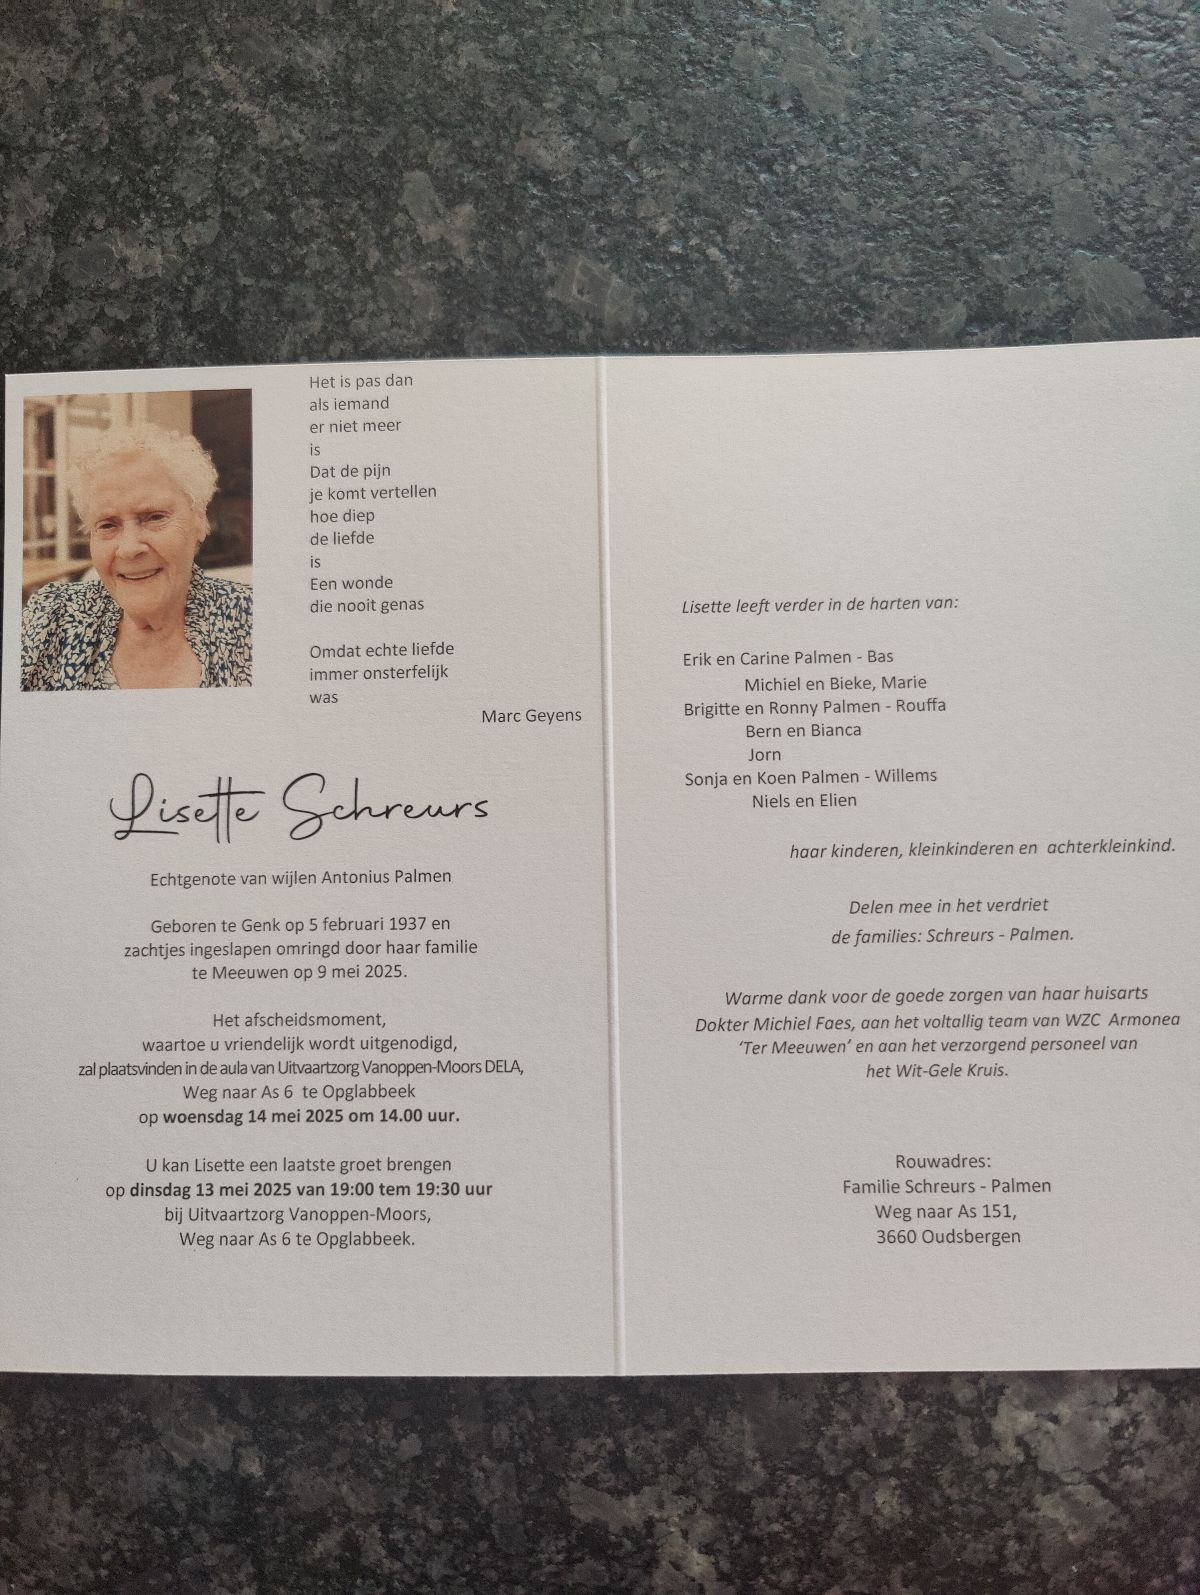 Het is pas dan
als iemand
er niet meer
is
Dat de pijn
je komt vertellen
hoe diep
de liefde
is
Een wonde
die nooit genas
Omdat echte liefde
immer onsterfelijk
was
Marc Geyens
Lisette Schreurs
Echtgenote van wijlen Antonius Palmen
Geboren te Genk op 5 februari 1937 en
zachtjes ingeslapen omringd door haar familie
te Meeuwen op 9 mei 2025.
Het afscheidsmoment,
waartoe u vriendelijk wordt uitgenodigd,
zal plaatsvinden in de aula van Uitvaartzorg Vanoppen-Moors DELA,
Weg naar As 6 te Opglabbeek
op woensdag 14 mei 2025 om 14.00 uur.
U kan Lisette een laatste groet brengen
op dinsdag 13 mei 2025 van 19:00 tem 19:30 uur
bij Uitvaartzorg Vanoppen-Moors,
Weg naar As 6 te Opglabbeek.
Lisette leeft verder in de harten van:
Erik en Carine Palmen - Bas
Michiel en Bieke, Marie
Brigitte en Ronny Palmen - Rouffa
Bern en Bianca
Jorn
Sonja en Koen Palmen - Willems
Niels en Elien
haar kinderen, kleinkinderen en achterkleinkind.
Delen mee in het verdriet
de families: Schreurs - Palmen.
Warme dank voor de goede zorgen van haar huisarts
Dokter Michiel Faes, aan het voltallig team van WZC Armonea
‘Ter Meeuwen’ en aan het verzorgend personeel van
het Wit-Gele Kruis.
Rouwadres:
Familie Schreurs - Palmen
Weg naar As 151,
3660 Oudsbergen